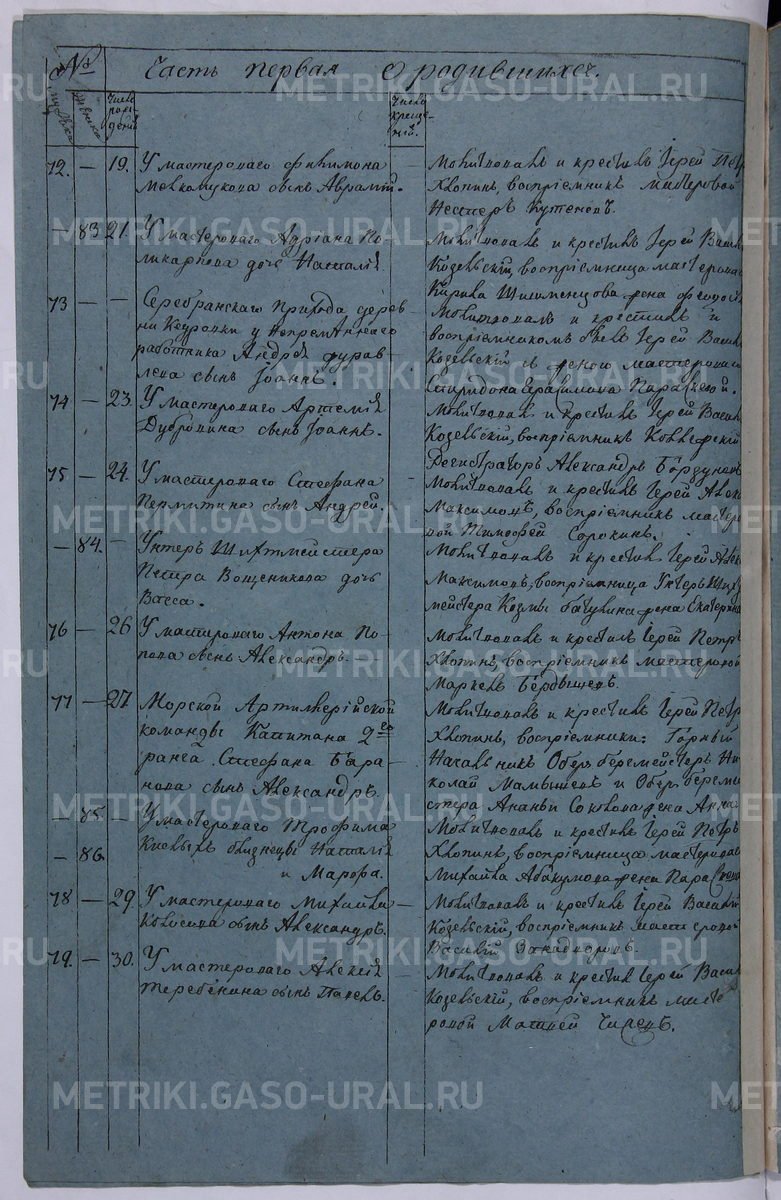 №
Часть первая О родившихся.
Число рождений
Число крещений.
72. — 19. У мастероваго Филимона
Молкомукова сынъ Аврамій.
Молитвовалъ и крестилъ Іерей Петр
Хлопинъ, воспріемникъ мастеровой
Нестеръ Кутеневъ.
— 83 21 У мастероваго Адріана По-
ликарпова дочь Наталія
Молитвовалъ и крестилъ Іерей Васил
Козельскій, воспріемница мастеровог
Кирила Шишменцова жена
73 — — Серебрянскаго Прихода дерев
ни Кедровки у непремѣннаго
работника Андрея Журав-
лева сынъ Іоаннъ.
Молитвовалъ и крестилъ и
воспріемникомъ былъ Іерей Васил
Козельскій съ женою мастероваго
Спиридона Герасимова Параскевой.
74 — 23. У мастероваго Артемія
Дубровина сынъ Іоаннъ.
Молитвовалъ и крестилъ Іерей Васил
Козельскій, воспріемникъ Коллежскій
Регистраторъ Александръ
75 — 24. У мастероваго Стефана
Пермитина сынъ Андрей.
Молитвовалъ и крестилъ Іерей Алекс
Максимовъ, воспріемникъ мастеро
вой Тимофей Сорокинъ.
— 84. — Унтеръ Шихтмейстера
Петра Вощеникова дочь
Васса.
Молитвовалъ и крестилъ Іерей Алек
Максимовъ, воспріемница Унтеръ Ших
мейстера Козмы жена Екатерина
76 — 26 У мастероваго Антона По-
пова сынъ Александръ.
Молитвовалъ и крестилъ Іерей Петръ
Хлопинъ, воспріемникъ мастеровой
Маркелъ Бердышевъ.
77 — 27 Морской Артиллерійской
команды Капитана 2го
ранга Стефана Бара-
нова сынъ Александръ.
Молитвовалъ и крестилъ Іерей Петр
Хлопинъ, воспріемники: Горный
Начальникъ Оберъ бергмейстеръ Ни
колай Мамышевъ и Оберъ бергмей
стера Ананьи Соколова жена Анна
— 85. — У мастероваго Трофима
— 86. близнецы Наталія
и Марфа.
Молитвовалъ и крестилъ Іерей Петръ
Хлопинъ, воспріемница мастеровог
Михайла Абакумова жена Параскева
78 — 29 У мастероваго Михайла
Колосова сынъ Александръ.
Молитвовалъ и крестилъ Іерей Василій
Козельскій, воспріемникъ мастеровой
Василий
79. — 30. У мастероваго Алексія
Теребенина сынъ Павелъ.
Молитвовалъ и крестилъ Іерей Васил
Козельскій, воспріемникъ масте-
ровой Матвей
METRIKI.GASO-URAL.RU